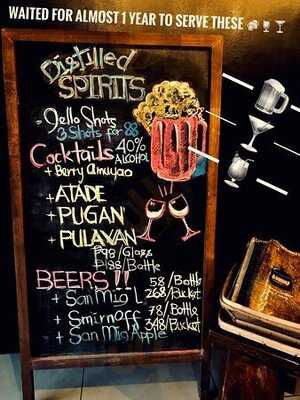 WAITED FOR ALMOST 1 YEAR TO SERVE THESE
Distilled
SPIRITS
- Jello Shots
3 Shots for 88
Cocktails 40%
ALCOHOL
+ Berry Amuyao
+ ATADE
+ PUGAN
+ PULAWAN
₱98/Glass
₱198/Bottle
BEERS!! 58/Bottle
+ San Mig L 268/Bucket
+ Smirnoff 78/Bottle
+ San Mig Apple 348/Bucket